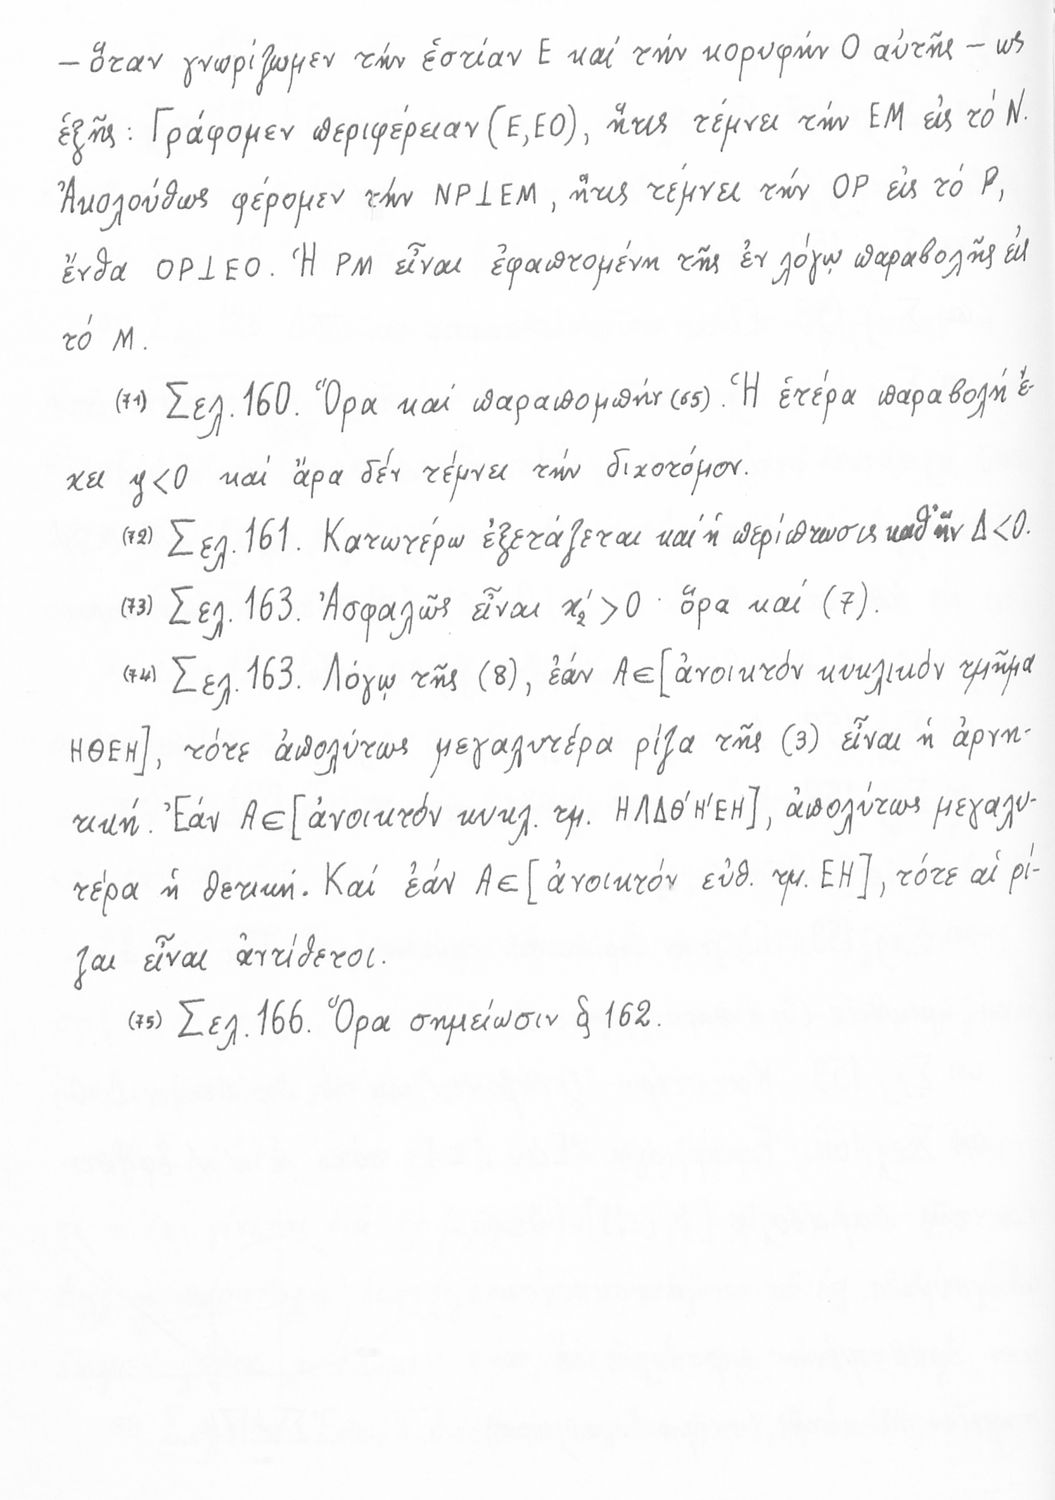 – ὅταν γνωρίζωμεν τήν ἑστίαν Ε καί τήν κορυφήν Ο αὐτῆς – ως
ἑξῆς: Γράφομεν περιφέρειαν (Ε,ΕΟ), ἥτις τέμνει τήν ΕΜ εἰς τό Ν.
Ἀκολούθως φέρομεν τήν ΝΡ⊥ΕΜ, ἥτις τέμνει τήν ΟΡ εἰς τό Ρ,
ἔνθα ΟΡ⊥ΕΟ. Ἡ ΡΜ εἶναι ἐφαπτομένη τῆς ἐν λόγῳ παραβολῆς εἰς
τό Μ.
(71) Σελ. 160. Ὅρα καί παραπομπήν (65). Ἡ ἑτέρα παραβολή ἔ-
χει ψ<0 καί ἄρα δέν τέμνει τήν διχοτόμον.
(72) Σελ. 161. Κατωτέρω ἐξετάζεται καί ἡ περίπτωσις καθ' ἥν Δ<0.
(73) Σελ. 163. Ἀσφαλῶς εἶναι x₂'>0 · ὅρα καί (7).
(74) Σελ. 163. Λόγῳ τῆς (8), ἐάν Α∈[ἀνοικτόν κυκλικόν τμῆμα
ΗΘΕΗ], τότε ἀπολύτως μεγαλυτέρα ρίζα τῆς (3) εἶναι ἡ ἀρνη-
τική. Ἐάν Α∈[ἀνοικτόν κυκλ. τμ. ΗΛΔΘ'Η'ΕΗ], ἀπολύτως μεγαλυ-
τέρα ἡ θετική. Καί ἐάν Α∈[ἀνοικτόν εὐθ. τμ. ΕΗ], τότε αἱ ρί-
ζαι εἶναι ἀντίθετοι.
(75) Σελ. 166. Ὅρα σημείωσιν § 162.